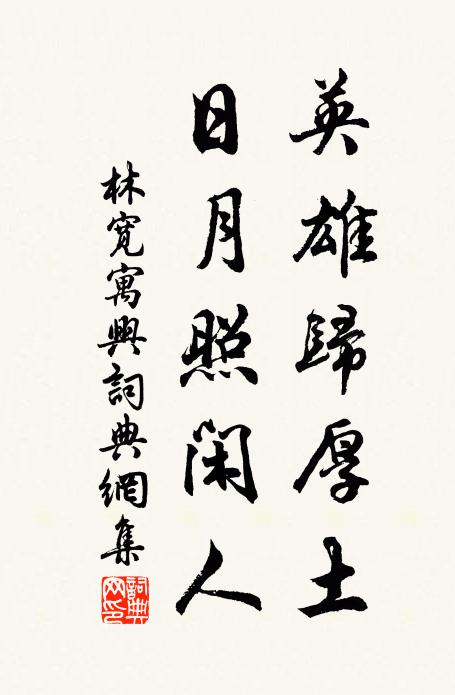 英雄歸厚土
日月照閑人
林寬寓興詞典網集
詞典網印